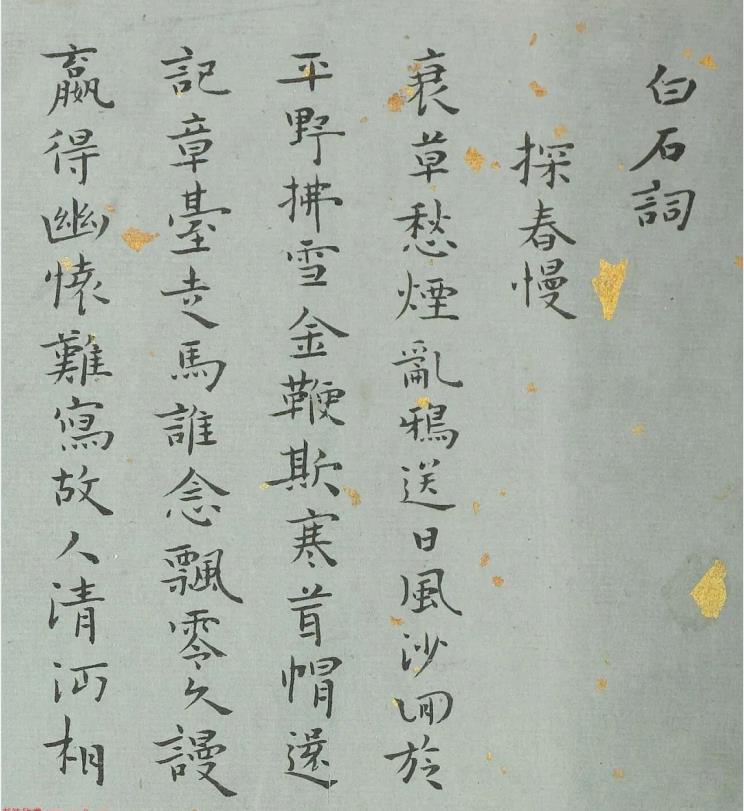 白石詞
探春慢
衰草愁煙亂鴉送日風沙回旋
平野拂雪金鞭欺寒茸帽還
記章臺走馬誰念飄零久謾
嬴得幽懷難寫故人清沔相